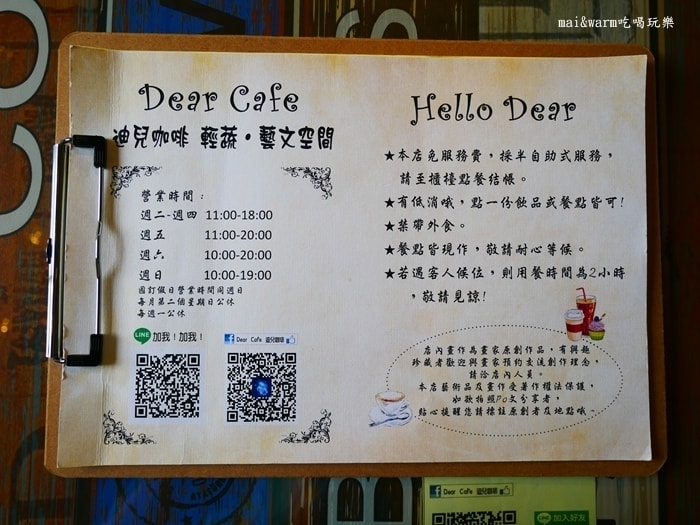 mai&warm吃喝玩樂
Dear Cafe
迪兒咖啡 輕蔬・藝文空間
營業時間：
週二-週四 11:00-18:00
週五 11:00-20:00
週六 10:00-20:00
週日 10:00-19:00
國訂假日營業時間同週日
每月第二個星期日公休
每週一公休
LINE 加我！加我！
f Dear Cafe 迪兒咖啡
Hello Dear
★本店免服務費，採半自助式服務，
請至櫃檯點餐結帳。
★有低消哦，點一份飲品或餐點皆可!
★禁帶外食。
★餐點皆現作，敬請耐心等候。
★若遇客人候位，則用餐時間為2小時
，敬請見諒!
店內畫作為畫家原創作品，有興趣
珍藏者歡迎與畫家預約交流創作理念，
請洽店內人員。
本店藝術品及畫作受著作權法保護，
如欲拍照Po文分享者，
貼心提醒您請標註原創者及地點哦~
f Dear Cafe 迪兒咖啡
LINE 加入好友